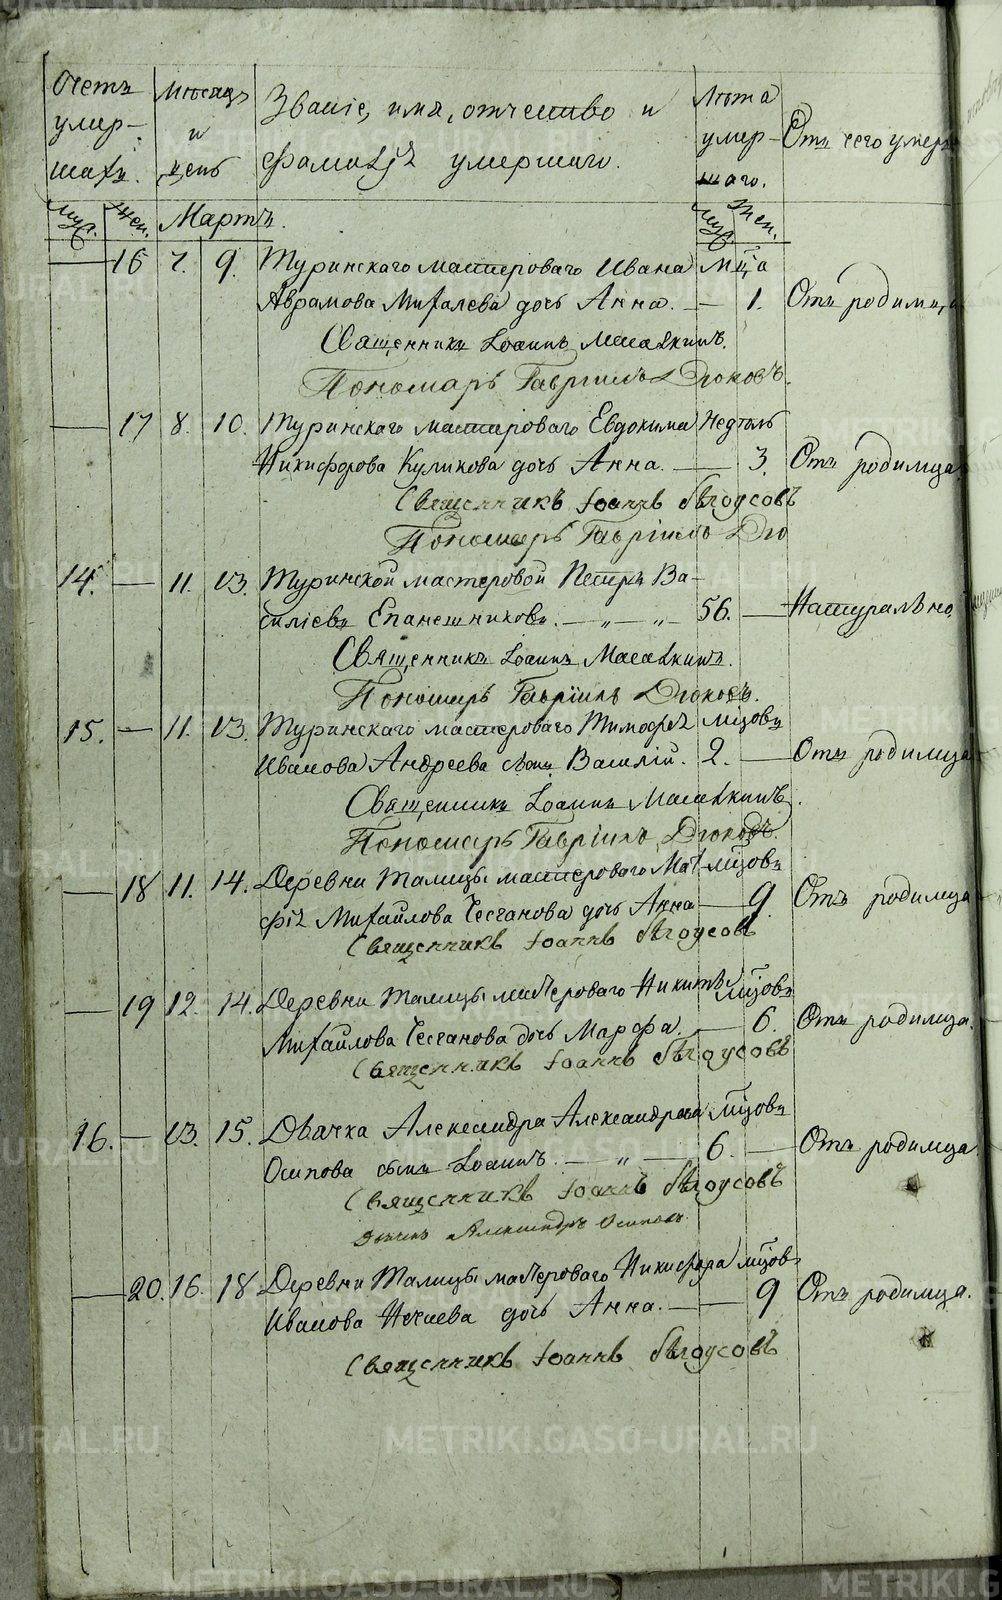 Счетъ умер-шихъ.
Мѣсяцъ и день
Званіе, имя, отчество и фамилія умершаго.
Лѣта умер-шаго.
Отъ чего умеръ
муж. жен. Мартъ. муж. жен.
16 7. 9. Туринскаго мастероваго Ивана мц̃а
Аврамова Михалева дочь Анна. — 1. Отъ родимца
Священникъ Іоаннъ
Пономарь Гавріилъ Дюковъ.
17 8. 10. Туринскаго мастероваго Евдокима Недѣль
Никифорова Куликова дочь Анна. — 3. Отъ родимца.
Священникъ Іоаннъ Бѣлоусовъ
Пономарь Гавріилъ Дю
14. — 11. 13. Туринской мастеровой Петръ Ва-
силіевъ Епанешниковъ. — „ — „ — 56. — Натурально.
Священникъ Іоаннъ
Пономарь Гавріилъ Дюковъ.
15. — 11. 13. Туринскаго мастероваго Тимофея мц̃овъ
Иванова Андреева сынъ Василій. 2. — Отъ родимца
Священникъ Іоаннъ
Пономарь Гавріилъ Дюковъ.
— 18 11. 14. Деревни Талицы мастероваго Мат- мц̃овъ
фія Михайлова Чесганова дочь Анна — 9. Отъ родимца
Священникъ Іоаннъ Бѣлоусовъ
— 19 12. 14. Деревни Талицы мастероваго Никиты мц̃овъ
Михайлова Чесганова дочь Марфа. — 6. Отъ родимца.
Священникъ Іоаннъ Бѣлоусовъ
16. — 13. 15. Дьячка Александра Александрова мц̃овъ
Осипова сынъ Іоаннъ. — „ — 6. — Отъ родимца.
Священникъ Іоаннъ Бѣлоусовъ
Дьячекъ Александръ Осиповъ
— 20. 16. 18 Деревни Талицы мастероваго Никифора мц̃овъ
Иванова Нечаева дочь Анна. — — 9 Отъ родимца.
Священникъ Іоаннъ Бѣлоусовъ
METRIKI.GASO-URAL.RU